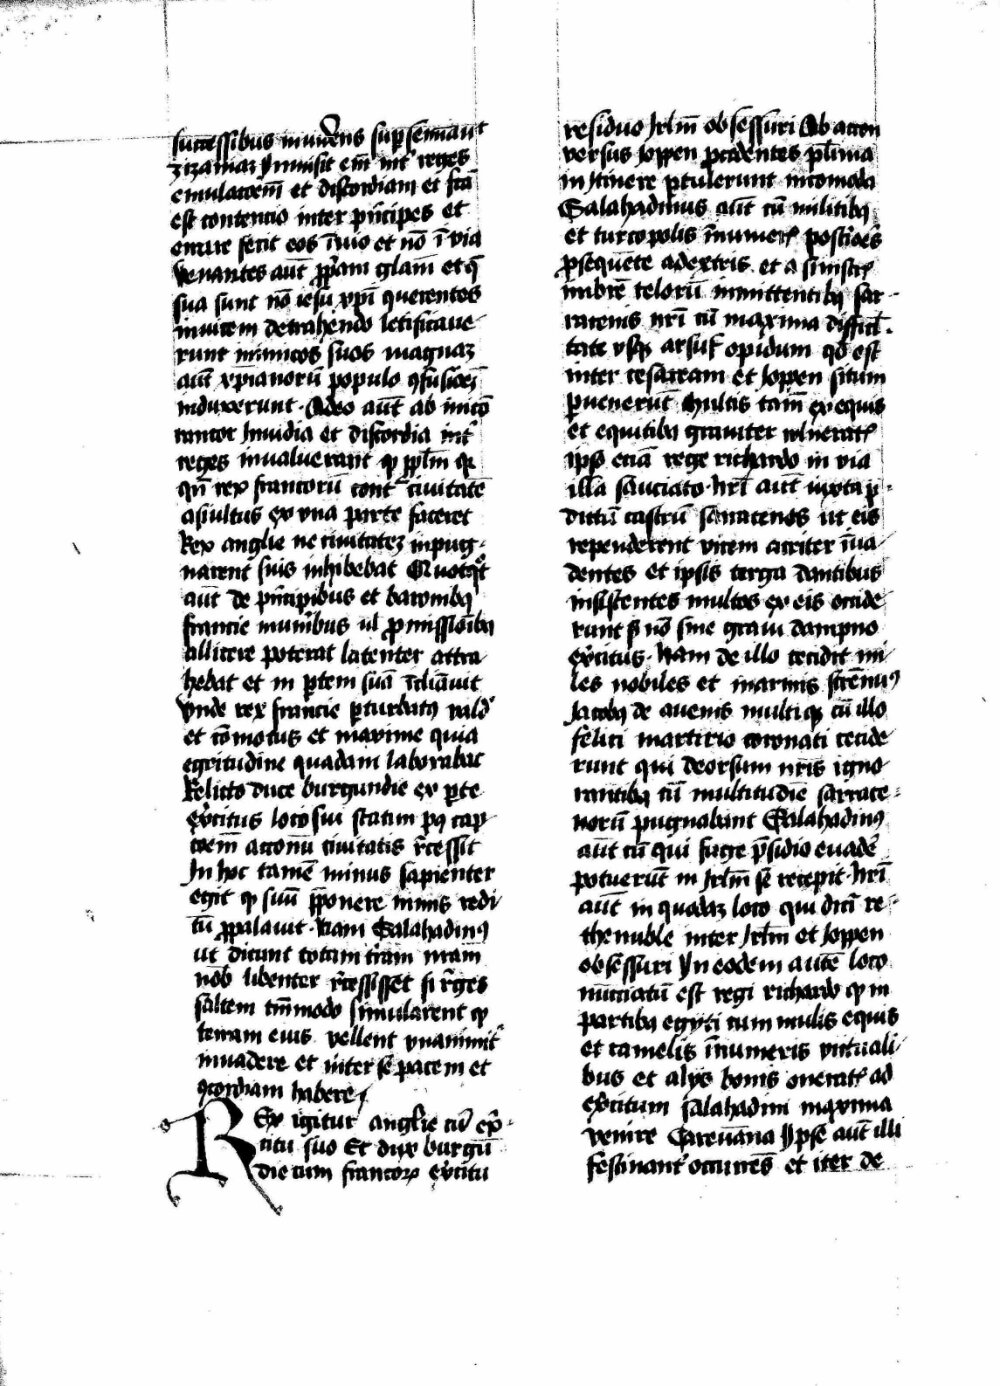 successibus inuidens sup seminauit
zizamaz Jnmisit em̄ int' reges
emulacoem̄ et discordiam et fc̄a
est contencio inter pͥncipes et
errare fecit eos ī inuio et nō ī via
Venantes aut̄ ꝓpͥam gl̄am et q̄
sua sunt nō iesu xp̄i querentes
inuicem detrahendo letificaue
runt inimicos suos magnaz
aut̄ xp̄ianorū populo ꝯfusioēȝ
induxerunt · Adeo aut̄ ab inico
rancor Jnuidia et discordia int'
reges inualuerant ꝙ pplm̄
qn̄ rex francorū cont͛ ciuitatē
asultus ex vna parte faceret
Rex anglie ne ciuitatez inpug-
narent suis inhibebat Quotqͦt
aut̄ de pͥncipibus et baronibꝫ
francie munībus ul ꝓmissiōibꝫ
allicere poterat latenter attra
hebat et in ꝑtem suā īcliauit
Vnde rex francie ꝑturbatꝰ vald'
et cōmotus et maxime quia
egritudine quadam laborabat
Relicto duce burgundie ex ꝑte
ex̄citus loco sui statim pꝰ cap
coem̄ acconū ciuitatis r̄cessit
In hoc tamen minus sapienter
egit ꝙ suū ꝓponere nimis redi
tū ꝓpalauit · Nam Salahadinꝰ
ut dicunt totam trām nrām
nob̄ libenter r̄cessisset si r̄ges
saltem tm̄modo simularent ꝙ
terram eius vellent vnanimit͛
inuadere et inter se pacem et
ꝯcordiam habere
Rex igitur anglie cū ex̄-
citu suo Et dux burgū
die cum francoꝝ ex̄citu
residuo Jrlm̄ obsessuri Ab accon
versus Joppen ꝓcedentes pl̄ima
in Jtinere ꝑtulerunt incomoda
Salahadinus aut̄ cū militibꝫ
et turcopolis īnumerꝭ postͥoēs
ꝓsequēte adextris et a sinistrꝭ
imbrē telorū inmittentibꝫ sar-
racenis nrī cū maxima difficl̄-
tate vsqꝫ arsuf opidum qd̄ est
inter cesaream et Joppen situm
ꝑuenerūt Multis tam̄ ex equis
et equitibꝫ grauiter vulneratꝭ
ipso eciā rege richardo in via
illa sauciato · nrī aut̄ iuxta p̄-
dictū castrū sarracenos ut eis
rependerent vicem acriter īua
dentes et ipsis terga dantibus
insistentes multos ex eis occide
runt sꝫ nō sine graui dampno
ex̄citus · Nam de illo cecidit mi
les nobiles et inarmis strēnuꝰ
Jacobꝫ de auenis multiqꝫ cū illo
felici martirio coronati cecide
runt qui deorsum nr̄is igno
rantibꝫ cū multitudiē sarrace-
norū pugnabant Salahadinꝰ
aut̄ cū qui fuge p̄sidio euadē
potuerūt in Jrlm̄ se recepit · nrī
aut̄ in quodaz loco qui dicͥ re
thenuble inter Jrlm̄ et Joppen
obsessuri Jn eodem autē loco
nūciatū est regi richardo ꝙ in
partibꝫ egypti cum mulis equis
et camelis īnumeris victuali
bus et alijs bonis oneratꝭ ad
ex̄citum salahadini maxima
venire Careuāna Jpse aut̄ illi
festinant͛ occurrēs et iter de